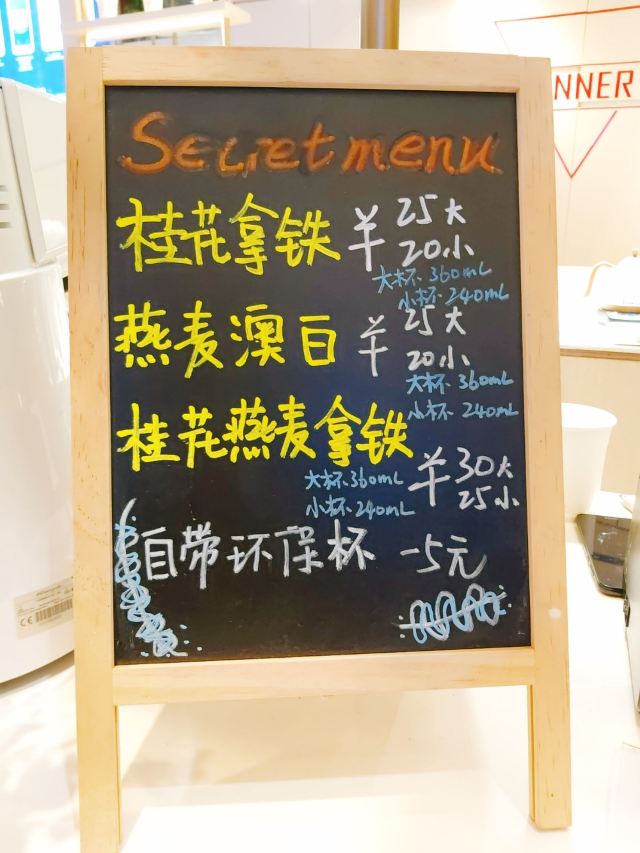 NNER
Secret menu
桂花拿铁 ¥ 25大
20小
大杯 360mL
小杯 240mL
燕麦澳白 ¥ 25大
20小
大杯 360mL
小杯 240mL
桂花燕麦拿铁
大杯 360mL ¥ 30大
小杯 240mL 25小
自带环保杯 -5元